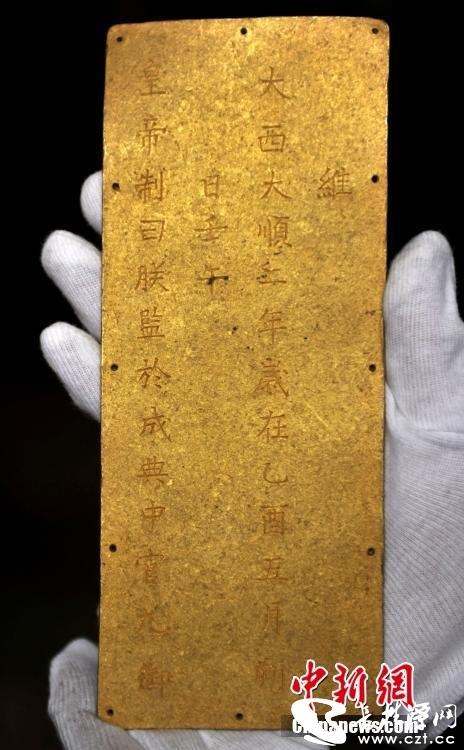 維
大西大順二年歲在乙酉五月朔
日壬午
皇帝制曰朕監於成典中宮九御
中新網
长株潭网
www.czt.cc